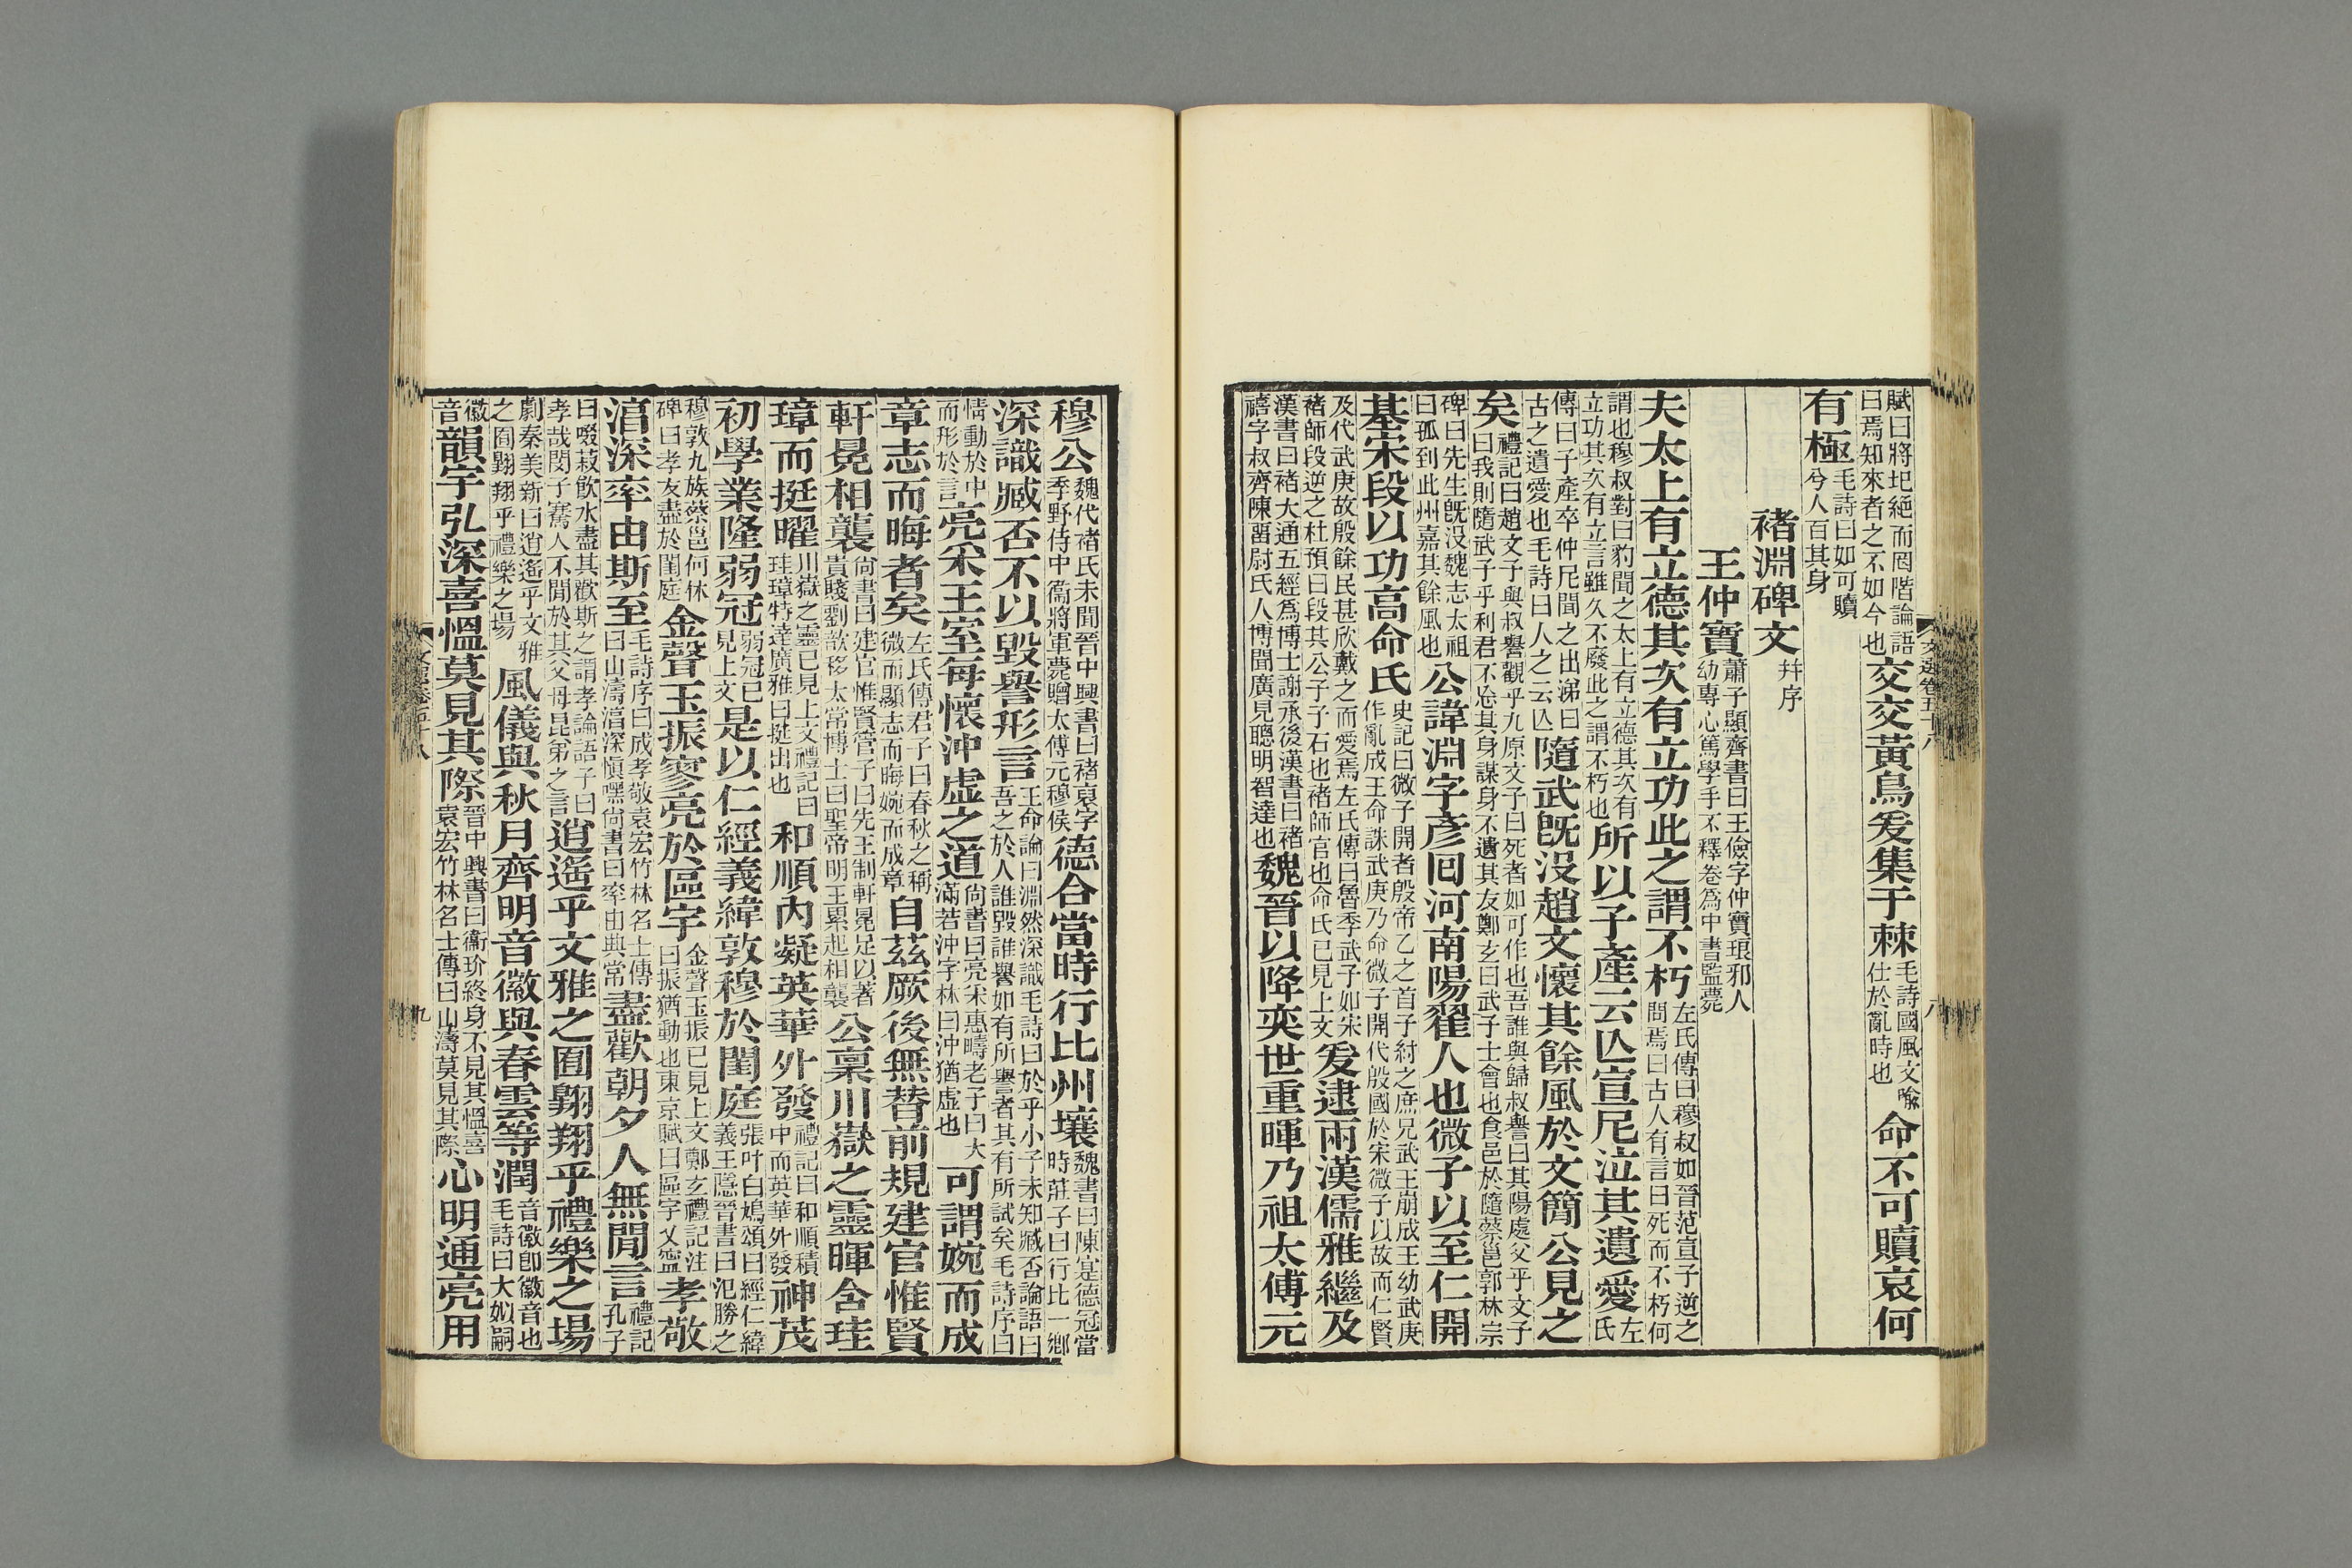 賦曰將圮絶而罔階論語曰焉知來者之不如今也交交黃鳥爰集于棘毛詩國風文喩仕於亂時也命不可贖哀何
有極毛詩曰如可贖兮人百其身
褚淵碑文幷序
王仲寶蕭子顯齊書曰王儉字仲寶琅邪人幼專心篤學手不釋卷爲中書監薨
夫太上有立德其次有立功此之謂不朽左氏傳曰穆叔如晉范宣子逆之問焉曰古人有言曰死而不朽何
謂也穆叔對曰豹聞之太上有立德其次有立功其次有立言雖久不廢此之謂不朽也所以子產云亾宣尼泣其遺愛左氏
傳曰子產卒仲尼聞之出涕曰古之遺愛也毛詩曰人之云亾隨武旣没趙文懷其餘風於文簡公見之
矣禮記曰趙文子與叔譽觀乎九原文子曰死者如可作也吾誰與歸叔譽曰其陽處父乎文子曰我則隨武子乎利君不忘其身謀身不遺其友鄭玄曰武子士會也食邑於隨蔡邕郭林宗
碑曰先生旣没魏志太祖曰孤到此州嘉其餘風也公諱淵字彥回河南陽翟人也微子以至仁開
基宋段以功高命氏史記曰微子開者殷帝乙之首子紂之庶兄武王崩成王幼武庚作亂成王命誅武庚乃命微子開代殷國於宋微子以故而仁賢
及代武庚故殷餘民甚欣戴之而愛焉左氏傳曰魯季武子如宋褚師段逆之杜預曰段其公子子石也褚師官也命氏已見上文爰逮兩漢儒雅繼及
漢書曰褚大通五經爲博士謝承後漢書曰褚禧字叔齊陳畱尉氏人博聞廣見聰明智達也魏晉以降奕世重暉乃祖太傅元
穆公魏代褚氏未聞晉中興書曰褚裒字季野侍中衞將軍薨贈太傅元穆侯德合當時行比州壤魏書曰陳寔德冠當時莊子曰行比一鄉
深識臧否不以毀譽形言王命論曰淵然深識毛詩曰於乎小子未知臧否論語曰吾之於人誰毀誰譽如有所譽者其有所試矣毛詩序曰
情動於中而形於言亮采王室每懷沖虛之道尙書曰亮采惠疇老子曰大滿若沖字林曰沖猶虛也可謂婉而成
章志而晦者矣左氏傳君子曰春秋之稱微而顯志而晦婉而成章自茲厥後無替前規建官惟賢
軒冕相襲尙書曰建官惟賢管子曰先王制軒冕足以著貴賤劉歆移太常博士曰聖帝明王累起相襲公稟川嶽之靈暉含珪
璋而挺曜川嶽之靈已見上文禮記曰珪璋特達廣雅曰挺出也和順內凝英華外發禮記曰和順積中而英華外發神茂
初學業隆弱冠弱冠已見上文是以仁經義緯敦穆於閨庭張叶白鳩頌曰經仁緯義王隱晉書曰氾勝之
穆敦九族蔡邕何休碑曰孝友盡於閨庭金聲玉振寥亮於區宇金聲玉振已見上文鄭玄禮記注曰振猶動也東京賦曰區宇乂寧孝敬
淳深率由斯至毛詩序曰成孝敬袁宏竹林名士傳曰山濤淳深愼嘿尙書曰率由典常盡歡朝夕人無閒言禮記孔子
曰啜菽飮水盡其歡斯之謂孝論語子曰孝哉閔子騫人不閒於其父母昆弟之言逍遙乎文雅之囿翺翔乎禮樂之場
劇秦美新曰逍遙乎文雅之囿翺翔乎禮樂之場風儀與秋月齊明音徽與春雲等潤音徽卽徽音也毛詩曰大姒嗣
徽音韻宇弘深喜慍莫見其際晉中興書曰衞玠終身不見其慍喜袁宏竹林名士傳曰山濤莫見其際心明通亮用
文選卷五十八
八
文選卷五十八
九